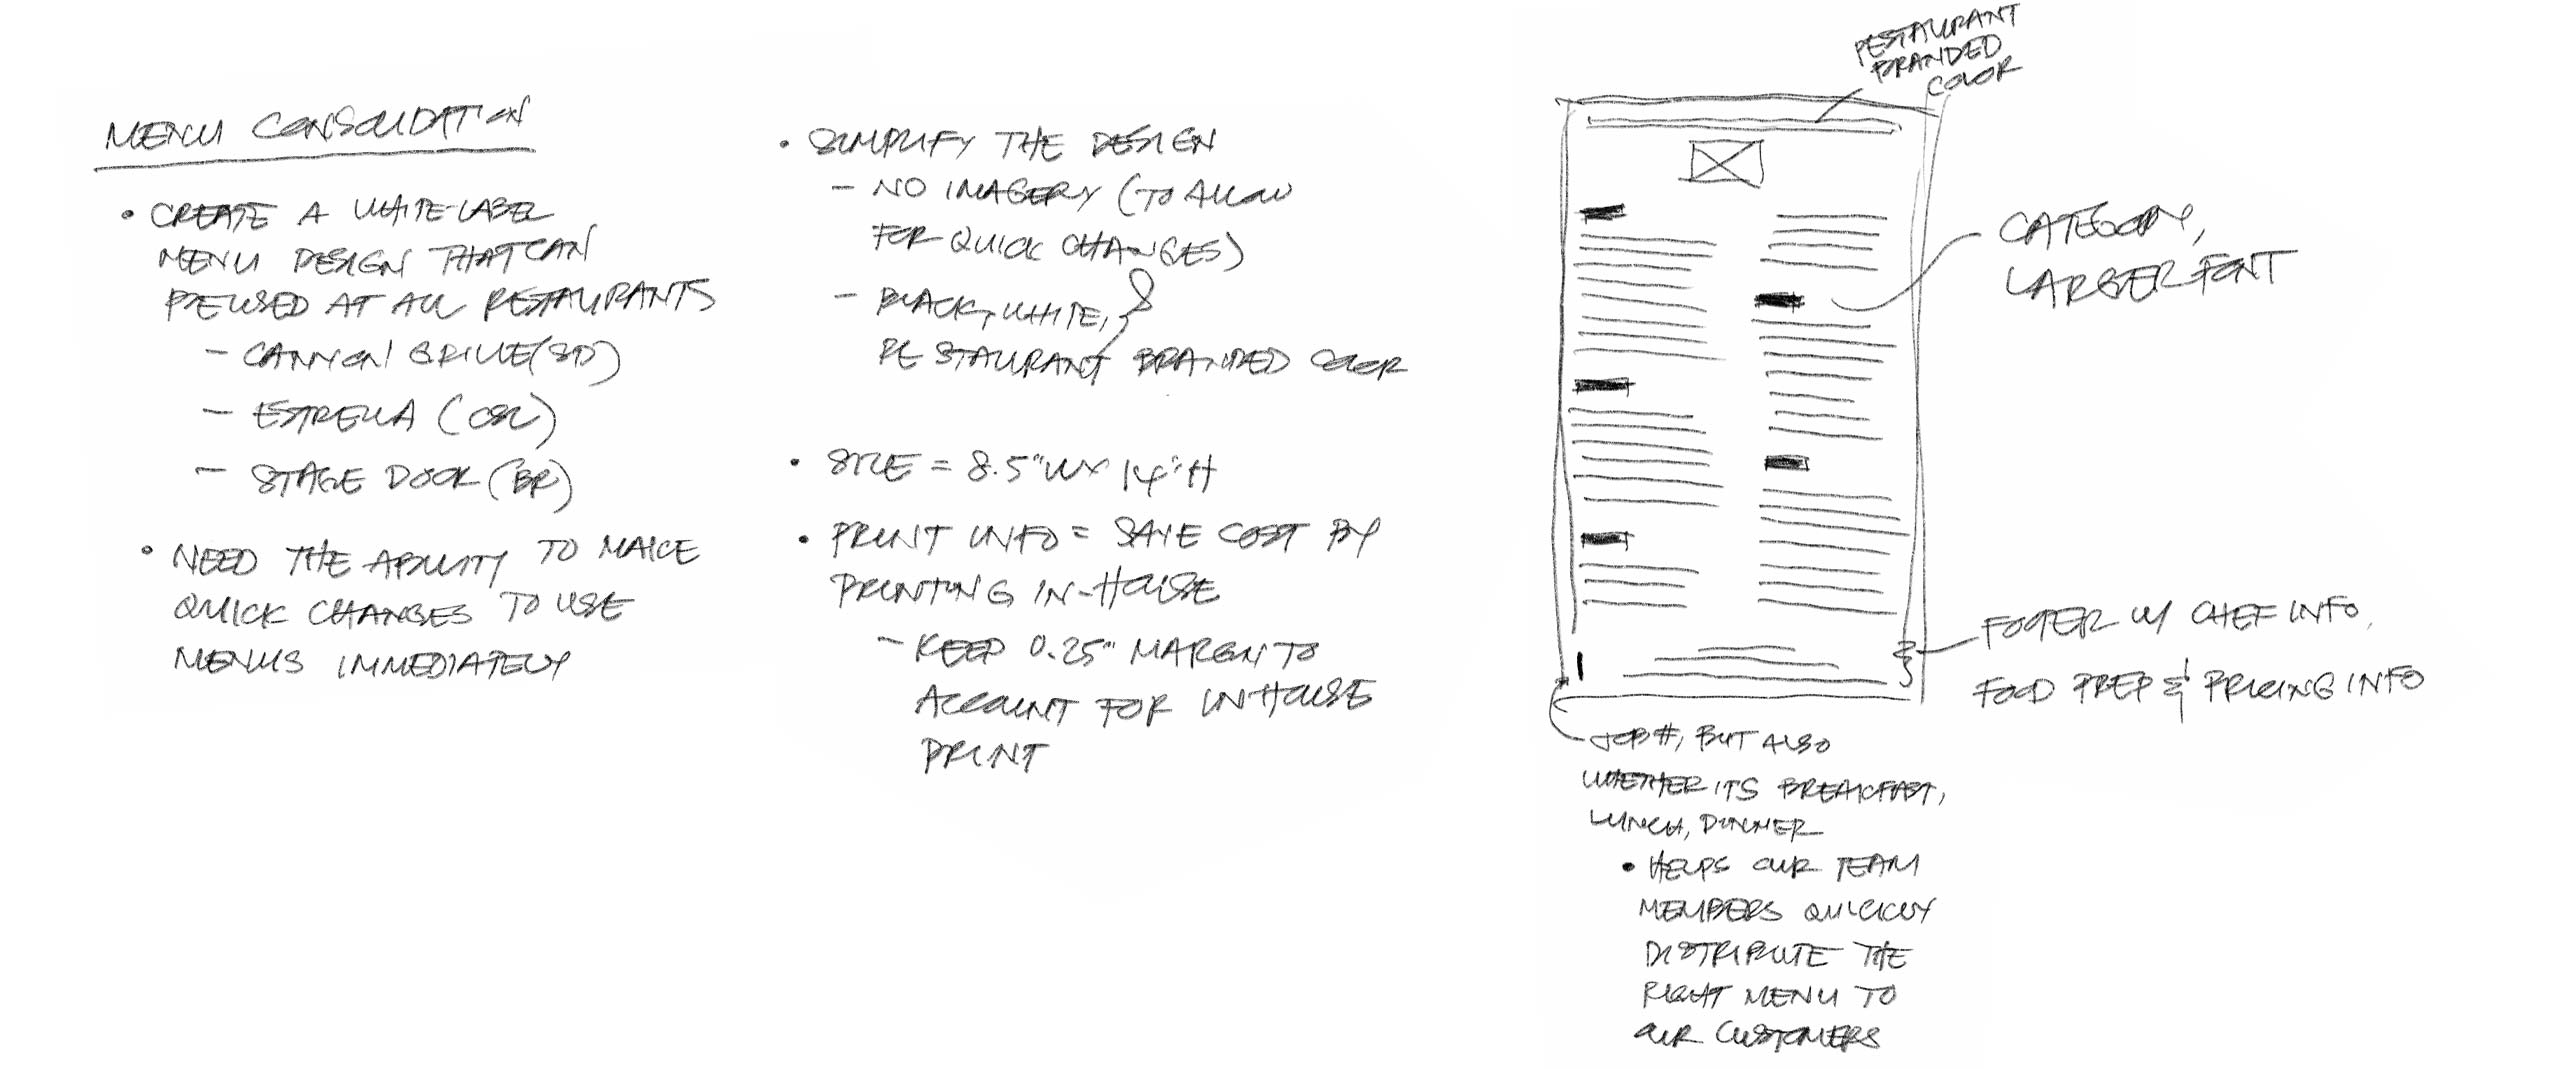 MENU CONSOLIDATION
• CREATE A WHITE-LABEL
MENU DESIGN THAT CAN
BE USED AT ALL RESTAURANTS
- CANYON GRILLE (SD)
- ESTRELLA (CSL)
- STAGE DOOR (BR)
• NEED THE ABILITY TO MAKE
QUICK CHANGES TO USE
MENUS IMMEDIATELY
• SIMPLIFY THE DESIGN
- NO IMAGERY (TO ALLOW
FOR QUICK CHANGES)
- BLACK, WHITE, &
RESTAURANT BRANDED COLOR
• SIZE = 8.5"W x 14"H
• PRINT INFO = SAVE COST BY
PRINTING IN-HOUSE
- KEEP 0.25" MARGIN TO
ACCOUNT FOR IN HOUSE
PRINT
RESTAURANT
BRANDED
COLOR
CATEGORY,
LARGER FONT
FOOTER W/ CHEF INFO,
FOOD PREP & PRICING INFO
JOB #, BUT ALSO
WHETHER ITS BREAKFAST,
LUNCH, DINNER
• HELPS OUR TEAM
MEMBERS QUICKLY
DISTRIBUTE THE
RIGHT MENU TO
OUR CUSTOMERS